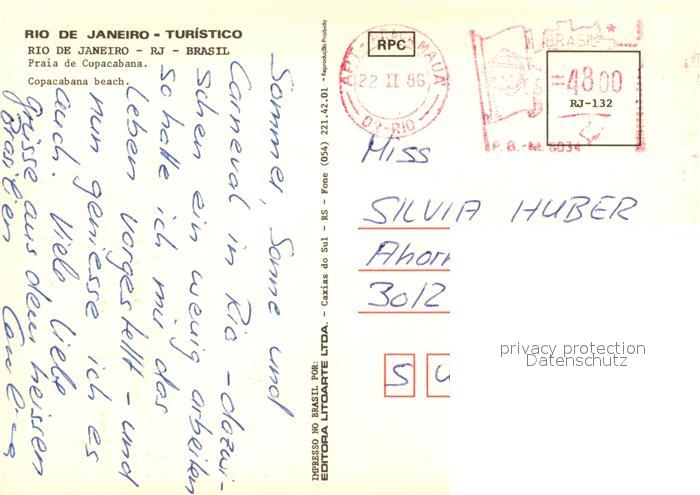 RIO DE JANEIRO - TURÍSTICO
RIO DE JANEIRO - RJ - BRASIL
Praia de Copacabana.
Copacabana beach.
Sommer, Sonne und
Carneval in Rio - dazwi-
schen ein wenig arbeiten
so hatte ich mir das
Leben vorgestellt - und
nun geniesse ich es
auch. Viele liebe
Grüsse aus dem heissen
Brasilien
IMPRESSO NO BRASIL POR:
EDITORA LITOARTE LTDA. - Caxias do Sul - RS - Fone (054) 221.42.01 - Reprodução Proibida
RPC
22 II 86
DR-RIO
BRASIL
=4800
RJ-132
P.B.-M. 8034
Miss
SILVIA HUBER
Ahorn
3012
S U
privacy protection
Datenschutz